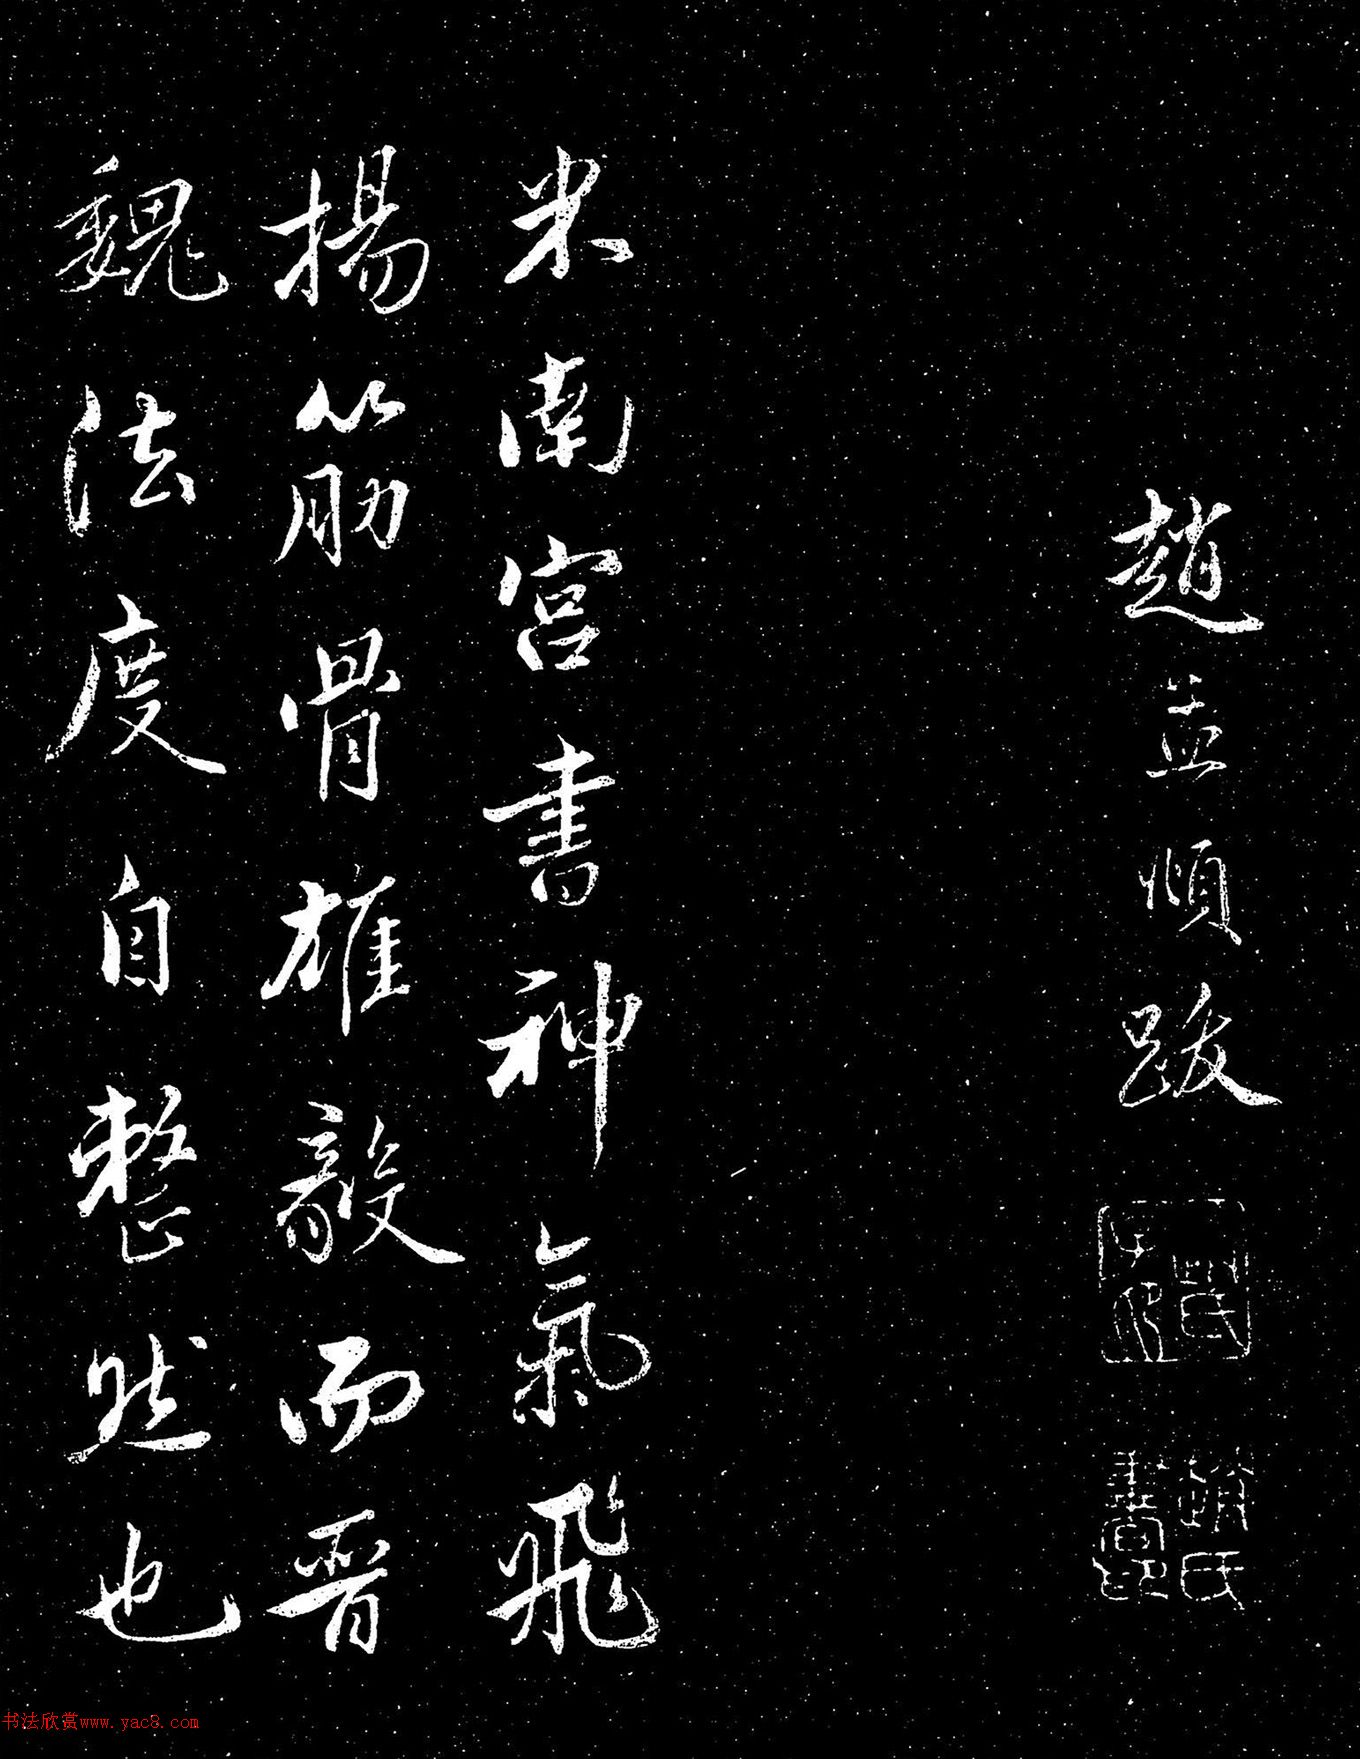 趙孟順跋
米南宮書神氣飛
揚筋骨雄毅而晉
魏法度自整然也
书法欣赏www.yac8.com